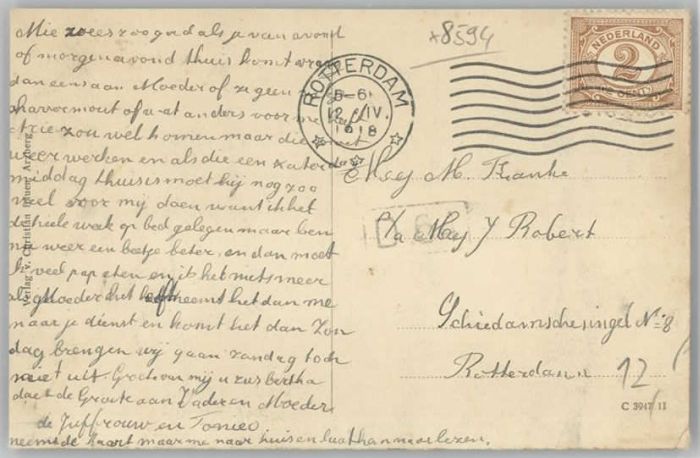 Mie zoo goed als u van avond
of morgenavond thuis komt vraag
dan eens aan Moeder of ze geen
havermout of wat anders voor me
zou wel komen maar die
weer werken en als die een zaterdag
middag thuis is moet hij nog zoo
veel voor mij doen want ik heb
de heele week op bed gelegen maar ben
nu weer een beetje beter, en dan moet
ik veel pap eten en ik heb niets meer
als Moeder het heeft neemt het dan me
naar je dienst en komt het dan Zon
dag brengen wij gaan zondag toch
niet uit. Groet van mij u zus bertha
de Groete aan Vader en Moeder
de Juffrouw en Tonie
neem de kaart maar me naar huis en laat han maar lezen.
Verlag v. Christian Bauer, Arzberg
*8594
NEDERLAND
2
CENT
ROTTERDAM
5-6
12 IV.
1918
Mej M. Franke
p/a Mej J Robert
Schiedamschesingel No 8
Rotterdam
12
C 3947 11